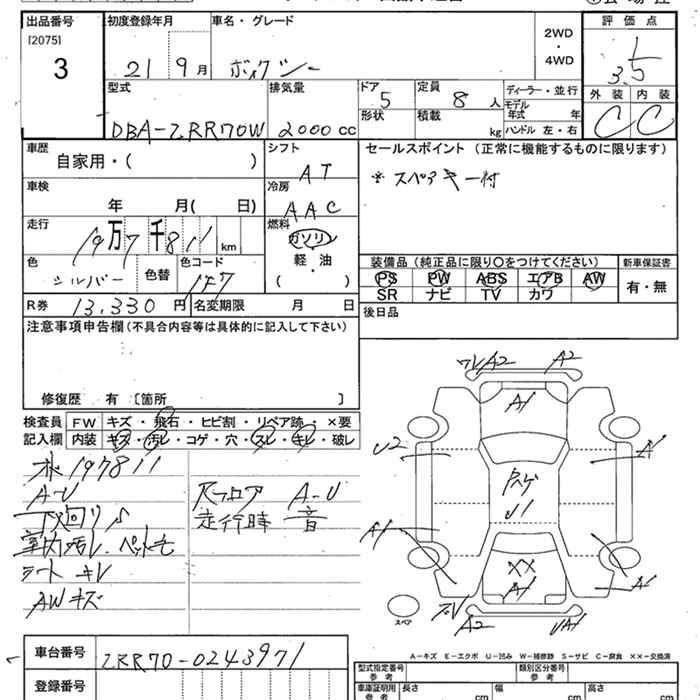 出品番号 初度登録年月 車名・グレード 評価点
[2075]
3
21 9月 ボクシー
2WD
・
4WD
3.5
外装 内装
C C
型式 排気量 ドア 定員 ディーラー・並行
DBA-ZRR70W 2000cc 5 8人
モデル年式 年
形状 積載 kg ハンドル 左・右
車歴 シフト セールスポイント(正常に機能するものに限ります)
自家用・( ) AT
※スペアキー付
車検 冷房
年 月( 日) AAC
走行 燃料
19万7千811km ガソリン
軽・油
( )
色 色替 色コード
シルバー 147
装備品(純正品に限り○をつけてください) 新車保証書
PS PW ABS エアB AW 有・無
SR ナビ TV カワ
R券 13,330円 名変期限 月 日
後日品
注意事項申告欄(不具合内容等は具体的に記入して下さい)
修復歴 有〔箇所 〕
検査員 FW キズ・飛石・ヒビ割・リペア跡 ×要
記入欄 内装 キズ・汚レ・コゲ・穴・スレ・キレ・破レ
197811
A-U
下廻りS
室内汚レ ペット毛
シートキレ
AWキズ
Rフロア A-U
走行時 音
A2 A2
A1
U2
A1
U1
A1
XX
A1
A1
A2
UA1
スペア
A-キズ E-エクボ U-凹み W-補修跡 S-サビ C-腐食 XX-交換済
車台番号 ZRR70-0243971
登録番号
型式指定番号 参考 類別区分番号 参考
車庫証明用 参考 長さ cm 幅 cm 高さ cm